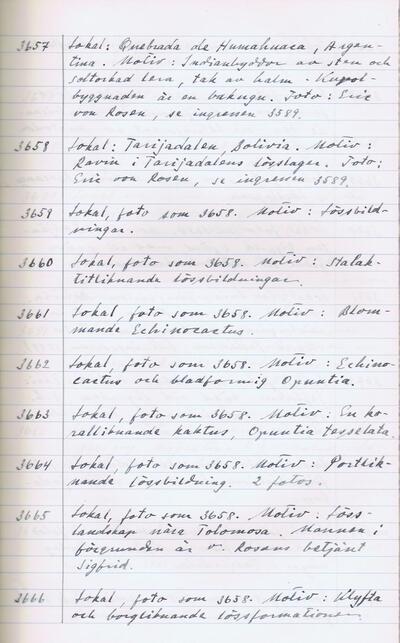 3657 Lokal: Quebrada de Humahuaca, Argen-
tina. Motiv: Indianhyddor av sten och
soltorkad lera, tak av halm. Kupol-
byggnaden är en bakugn. Foto: Eric
von Rosen, se ingressen 3589.
3658 Lokal: Tarijadalen, Bolivia. Motiv:
Ravin i Tarijadalens lösslager. Foto:
Eric von Rosen, se ingressen 3589.
3659 Lokal, foto som 3658. Motiv: Lössbild-
ningar.
3660 Lokal, foto som 3658. Motiv: Stalak-
titliknande lössbildningar.
3661 Lokal, foto som 3658. Motiv: Blom-
mande Echinocactus.
3662 Lokal, foto som 3658. Motiv: Echino-
cactus och bladformig Opuntia.
3663 Lokal, foto som 3658. Motiv: En ko-
rallliknande kaktus, Opuntia tesselata.
3664 Lokal, foto som 3658. Motiv: Portlik-
nande lössbildning. 2 fotos.
3665 Lokal, foto som 3658. Motiv: Löss-
landskap nära Tolomosa. Mannen i
förgrunden är v. Rosens betjänt
Sigfrid.
3666 Lokal, foto som 3658. Motiv: Klyfta
och borgliknande lössformationer.